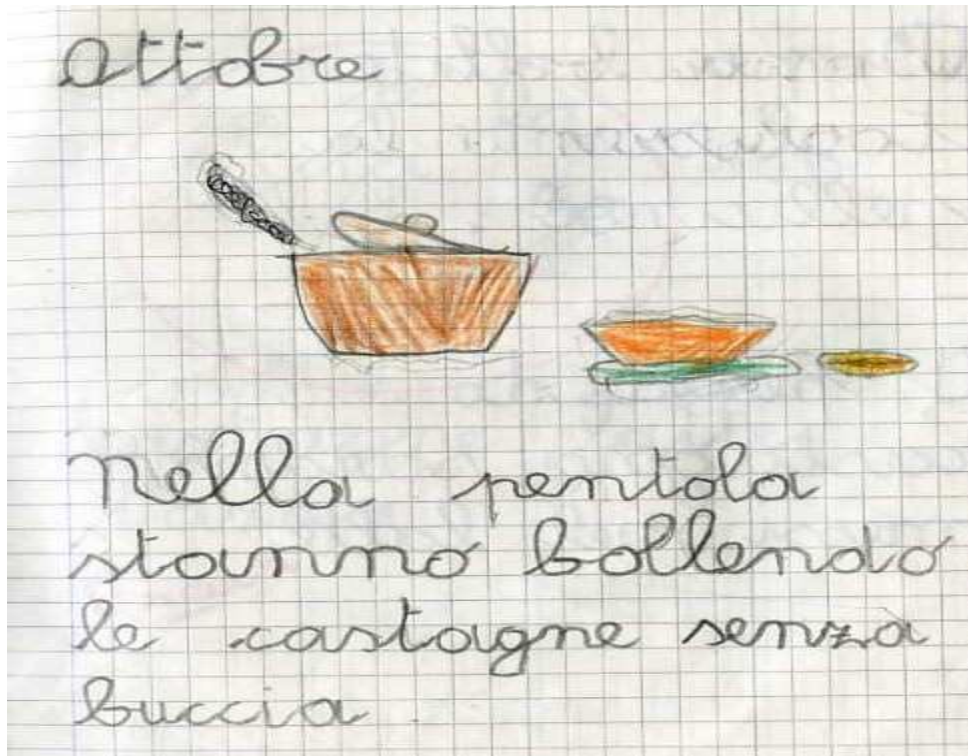 Ottobre
Nella pentola
stanno bollendo
le castagne senza
buccia